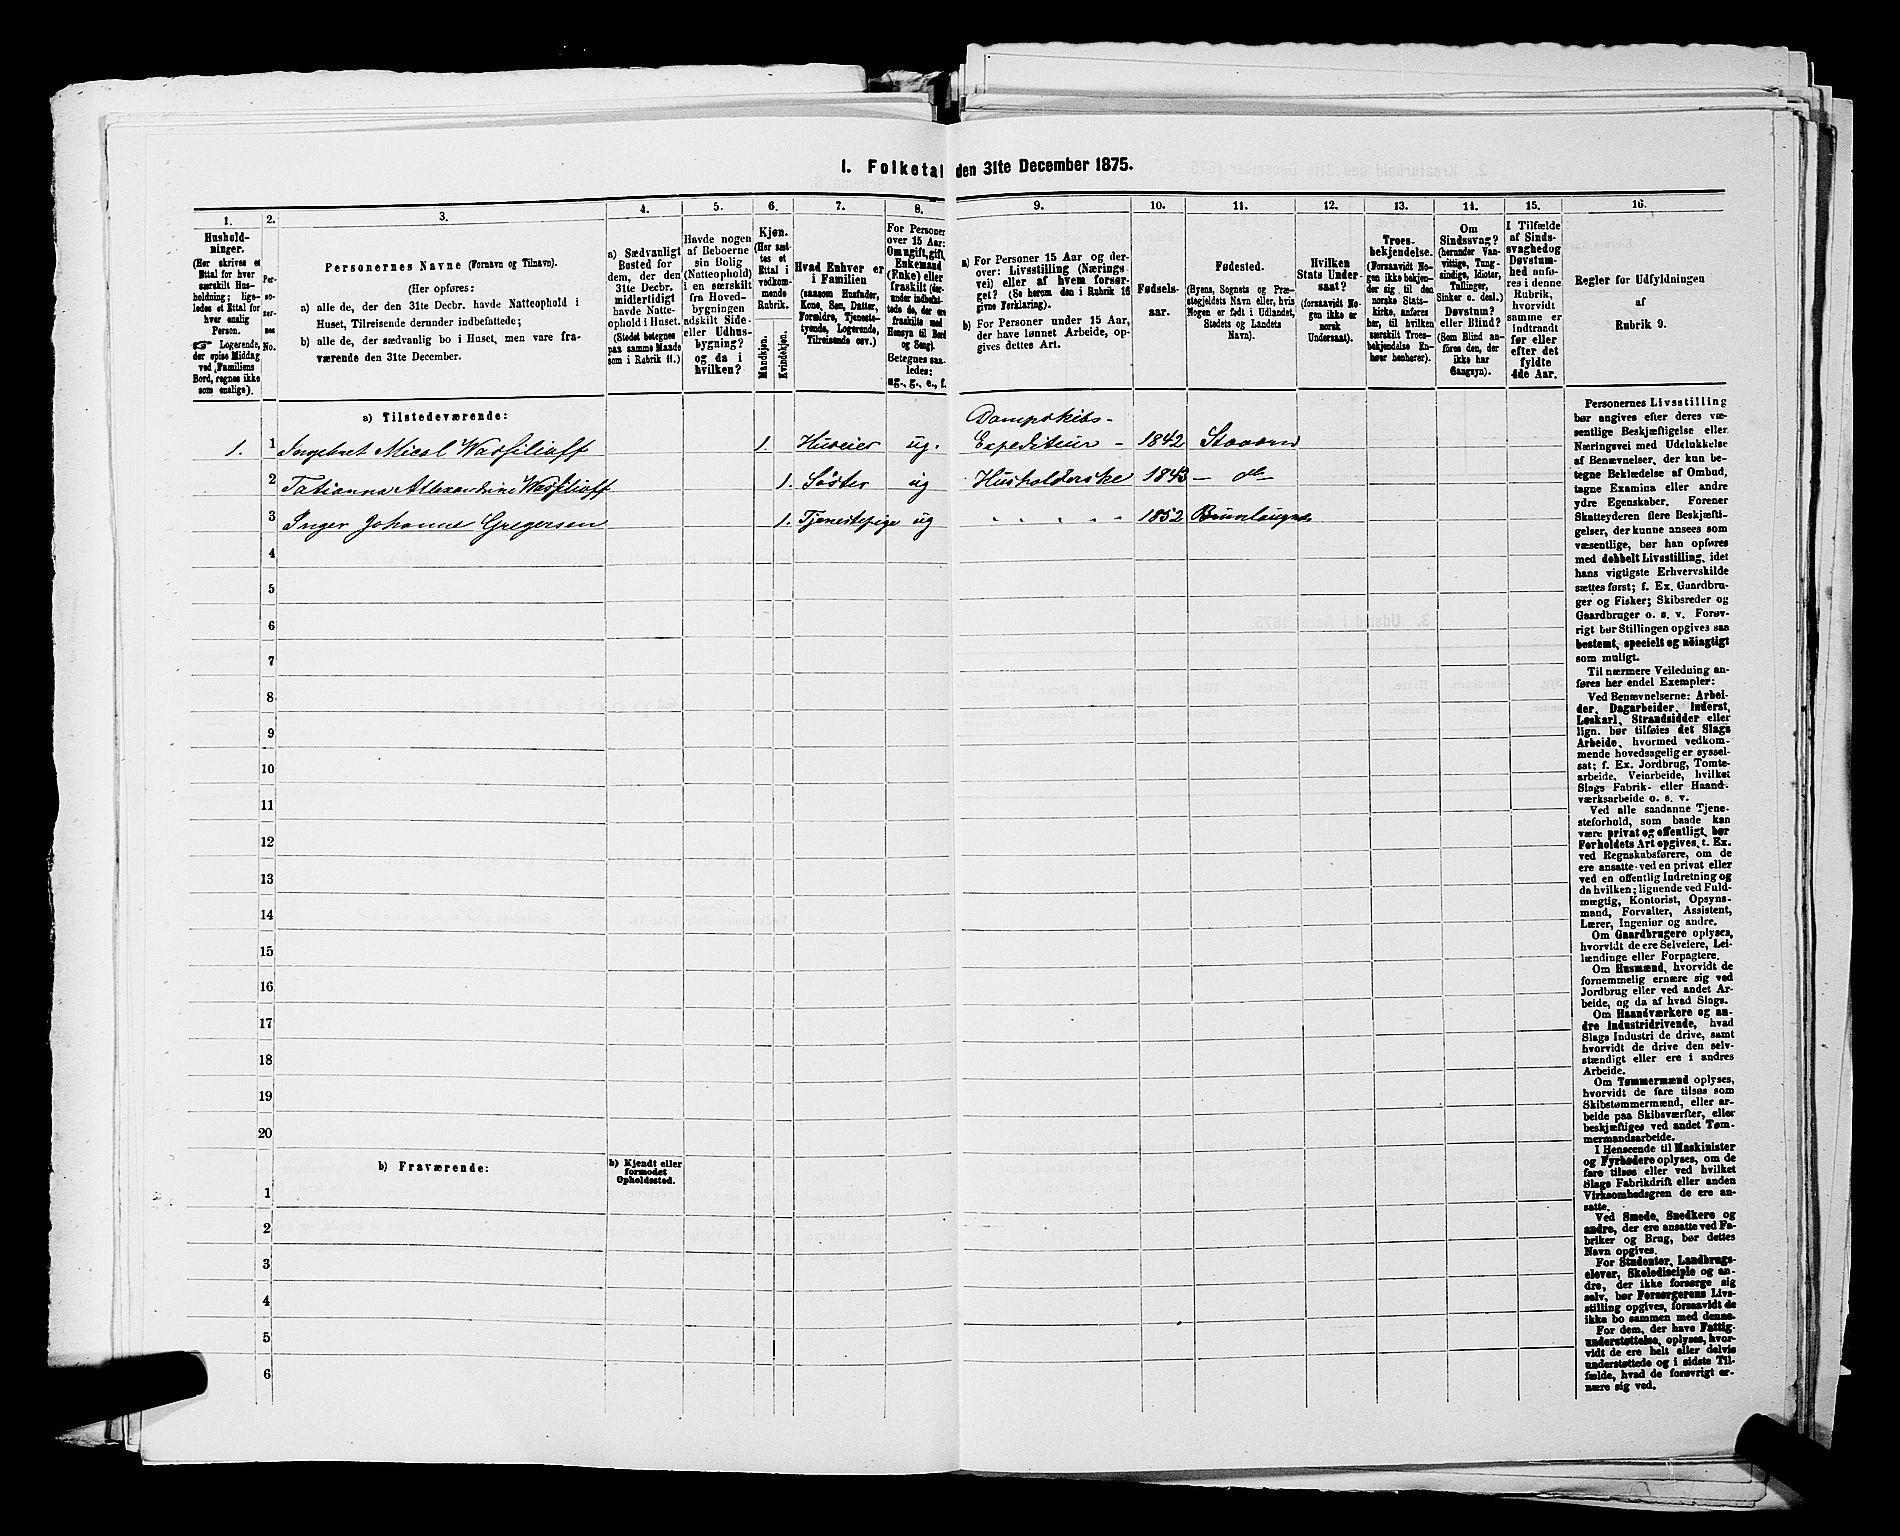 1. Folketal den 31te December 1875.
1. 2. 3. 4. 5. 6. 7. 8. 9. 10. 11. 12. 13. 14. 15. 16.
Hushold-
ninger.
(Her skrives et
Ettal for hver
særskilt Hus-
holdning; lige-
ledes et Ettal for
hver enslig
Person.
☞ Logerende,
der spise Middag
ved Familiens
Bord, regnes ikke
som enslige).
Per-
so-
ner-
nes
No.
Personernes Navne (Fornavn og Tilnavn).
(Her opføres:
a) alle de, der den 31te Decbr. havde Natteophold i
Huset, Tilreisende derunder indbefattede;
b) alle de, der sædvanlig bo i Huset, men vare fra-
værende den 31te December.
a) Sædvanligt
Bosted for
dem, der den
31te Decbr.
midlertidigt
havde Natte-
ophold i Huset.
(Stedet betegnes
paa samme Maade
som i Rubrik 11.)
Havde nogen
af Beboerne
sin Bolig
(Natteophold)
i en særskilt
fra Hoved-
bygningen
adskilt Side-
eller Udhus-
bygning?
og da i
hvilken?
Kjøn.
(Her sæt-
tes et
Ettal i
vedkom-
mende
Rubrik.
Mandkjøn.
Kvindekjøn.
Hvad Enhver er
i Familien
(saasom Husfader,
Kone, Søn, Datter,
Forældre, Tjeneste-
tyende, Logerende,
Tilreisende osv.)
For Personer
over 15 Aar:
Om ugift, gift,
Enkemand
(Enke) eller
fraskilt (der-
under indbefat-
tede de, der ere
fraskilte med
Hensyn til Bord
og Seng).
Betegnes saa-
ledes:
ug., g., e., f.
a) For Personer 15 Aar og der-
over: Livsstilling (Nærings-
vei) eller af hvem forsør-
get? (Se herom den i Rubrik 16
givne Forklaring).
b) For Personer under 15 Aar,
der have lønnet Arbeide, op-
gives dettes Art.
Fødsels-
aar.
Fødested.
(Byens, Sognets og Præ-
stegjeldets Navn eller, hvis
Nogen er født i Udlandet,
Stedets og Landets
Navn).
Hvilken
Stats Under-
saat?
(forsaavidt No-
gen ikke er
norsk
Undersaat).
Troes-
bekjendelse.
(Forsaavidt No-
gen ikke bekjen-
der sig til den
norske Stats-
kirke, anføres
her, til hvilken
særskilt Troes-
bekjendelse En-
hver henhører).
Om
Sindssvag?
(herunder Van-
vittige, Tung-
sindige, Idioter,
Tullinger,
Sinker o. desl.)
Døvstum?
eller Blind?
(Som Blind an-
føres den, der
ikke har
Gangsyn).
I Tilfælde
af Sinds-
svaghedog
Døvstum-
hed anfø-
res i denne
Rubrik,
hvorvidt
samme er
indtraadt
før eller
efter det
fyldte
4de Aar.
Regler for Udfyldningen
af
Rubrik 9.
a) Tilstedeværende:
Dampskibs-
1. 1 Ingebret Micol Wassilioff 1. Huseier ug. Expediteur - 1842 Stavern
2 Tatianna Alexandrine Wassilioff 1. Søster ug Husholderske 1843 - do -
3 Inger Johanne Gregersen 1. Tjenestepige ug " " " " " 1852 Brunlaugnæs
4
5
6
7
8
9
10
11
12
13
14
15
16
17
18
19
20
b) Fraværende:
b) Kjendt eller
formodet
Opholdssted.
1
2
3
4
5
6
Personernes Livsstilling
bør angives efter deres væ-
sentlige Beskjæftigelse eller
Næringsvei med Udelukkelse
af Benævnelser, der kun be-
tegne Beklædelse af Ombud,
tagne Examina eller andre
ydre Egenskaber. Forener
Skatteyderen flere Beskjæfti-
gelser, der kunne ansees som
væsentlige, bør han opføres
med dobbelt Livsstilling, idet
hans vigtigste Erhvervskilde
sættes først; f. Ex. Gaardbru-
ger og Fisker; Skibsreder og
Gaardbruger o. s. v. Forøv-
rigt bør Stillingen opgives saa
bestemt, specielt og nöiagtigt
som muligt.
Til nærmere Veiledning an-
føres her endel Exempler:
Ved Benævnelserne: Arbei-
der, Dagarbeider, Inderst,
Løskarl, Strandsidder eller
lign. bør tilføies det Slags
Arbeide, hvormed vedkom-
mende hovedsagelig er syssel-
sat; f. Ex. Jordbrug, Tomte-
arbeide, Veiarbeide, hvilket
Slags Fabrik- eller Haand-
værksarbeide o. s. v.
Ved alle saadanne Tjene-
steforhold, som baade kan
være privat og offentligt, bør
Forholdets Art opgives, t. Ex.
ved Regnskabsførere, om de
ere ansatte ved en privat eller
ved en offentlig Indretning og
da hvilken; lignende ved Fuld-
mægtig, Kontorist, Opsyns-
mand, Forvalter, Assistent,
Lærer, Ingeniør og andre.
Om Gaardbrugere oplyses,
hvorvidt de ere Selveiere, Lei-
lændinge eller Forpagtere.
Om Husmænd, hvorvidt de
fornemmelig ernære sig ved
Jordbrug eller ved andet Ar-
beide, og da af hvad Slags.
Om Haandværkere og an-
dre Industridrivende, hvad
Slags Industri de drive, samt
hvorvidt de drive den selv-
stændigt eller ere i andres
Arbeide.
Om Tømmermænd oplyses,
hvorvidt de fare tilsøs som
Skibstømmermænd, eller ar-
beide paa Skibsværfter, eller
beskjæftiges ved andet Tøm-
mermandsarbeide.
I Henseende til Maskinister
og Fyrbødere oplyses, om de
fare tilsøs eller ved hvilket
Slags Fabrikdrift eller anden
Virksomhedsgren de ere an-
satte.
Ved Smede, Snedkere og
andre, der ere ansatte ved Fa-
briker og Brug, bør dettes
Navn opgives.
For Studenter, Landbrugs-
elever, Skoledisciple og an-
dre, der ikke forsørge sig
selv, bør Forsørgerens Livs-
stilling opgives, forsaavidt de
ikke bo sammen med denne.
For dem, der have Fattig-
understøttelse, oplyses, hvor-
vidt de ere helt eller delvis
understøttede og i sidste Til-
fælde, hvad de forøvrigt er-
nære sig ved.